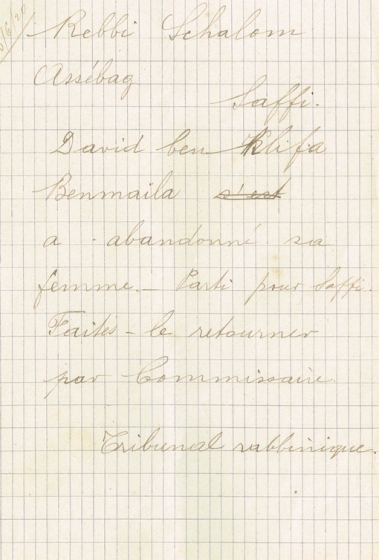 /6/20
Rebbi Schalom
Assébag
Saffi.
David ben Klifa
Benmaila s'est
a abandonné sa
femme. — Parti pour Saffi.
Faites - le retourner
par Commissaire
Tribunal rabbinique.